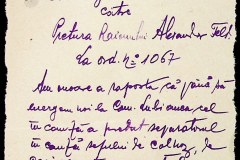 către
Pretura Raionului Alexandru Feld.
La ord. No 1067
Am onoare a raporta că până să
mergem noi la Com. Lubianca cel
în cauză a predat separatorul
în cauză șefului de colhoz, de